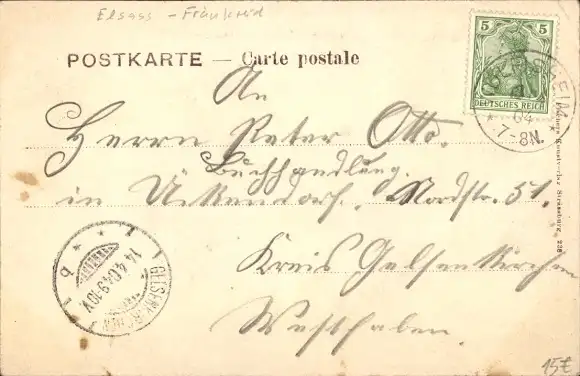 Elsass - Frankreich
POSTKARTE — Carte postale
5 5
DEUTSCHES REICH
HEIM
04
7-8N.
An
Herrn Peter Otto.
Buchhandlung.
in Ückendorf, Nordstr. 51.
Kreis Gelsenkirchen
Westfahlen.
GELSENKIRCHEN
14.4.04.9-10V.
Strassburg. 228
15€